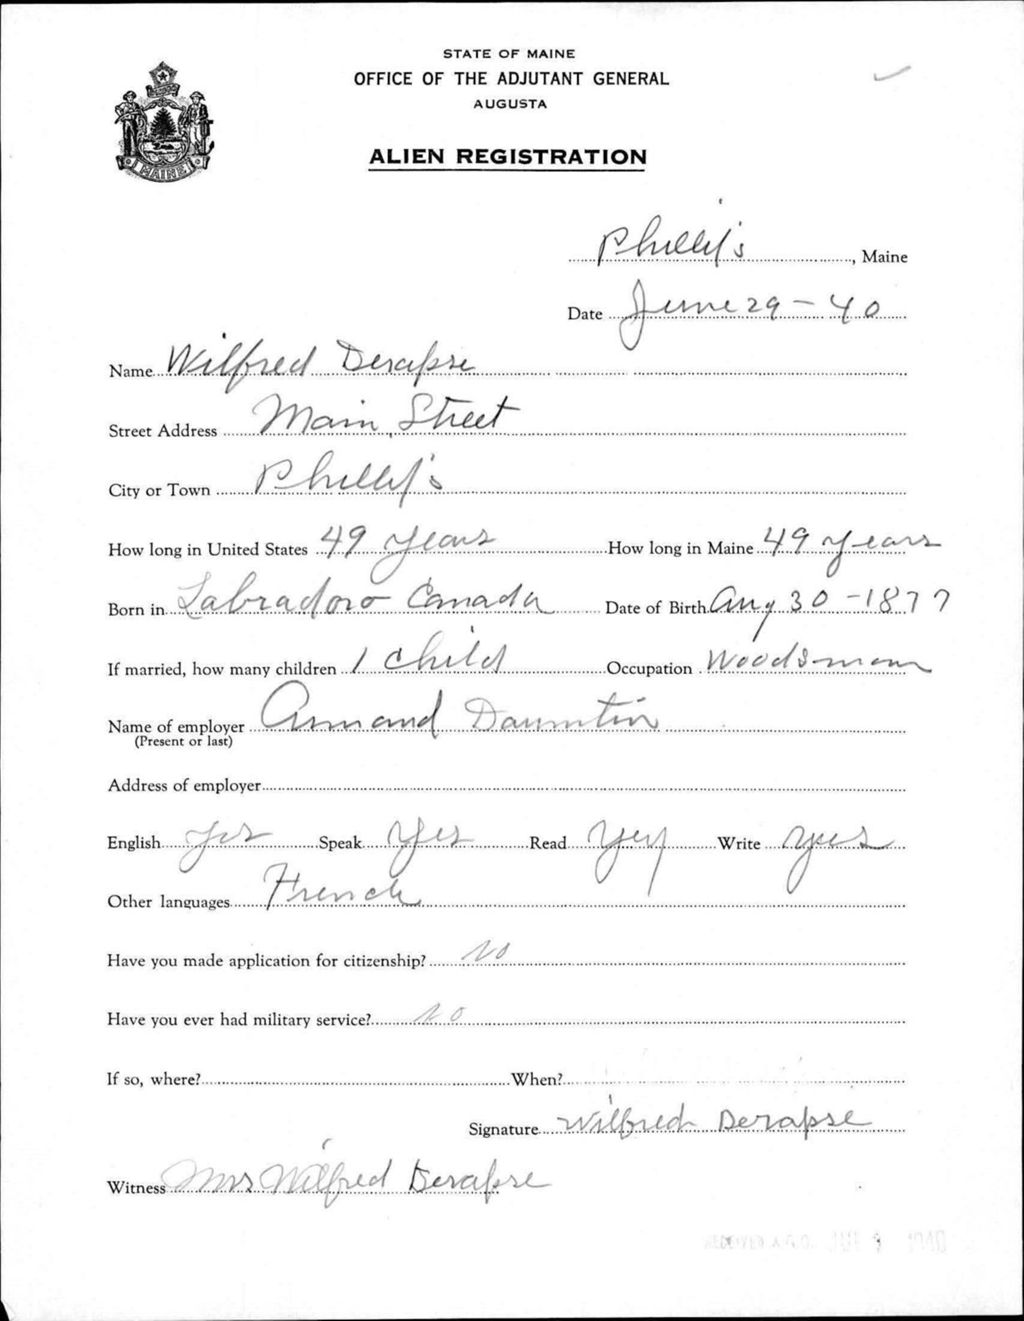 STATE OF MAINE
OFFICE OF THE ADJUTANT GENERAL
AUGUSTA
MAINE
ALIEN REGISTRATION
Phillip's, Maine
Date June 29 - 40
Name Wilfred Derapse
Street Address Main Street
City or Town Phillip's
How long in United States 49 years How long in Maine 49 years
Born in Labradoro Canada Date of Birth Aug 30 - 1877
If married, how many children 1 child Occupation Woodsman
Name of employer Armand
(Present or last)
Address of employer
English Yes Speak Yes Read Yes Write Yes
Other languages French
Have you made application for citizenship? No
Have you ever had military service? No
If so, where? When?
Signature Wilfred Derapse
Witness Mrs Wilfred Derapse